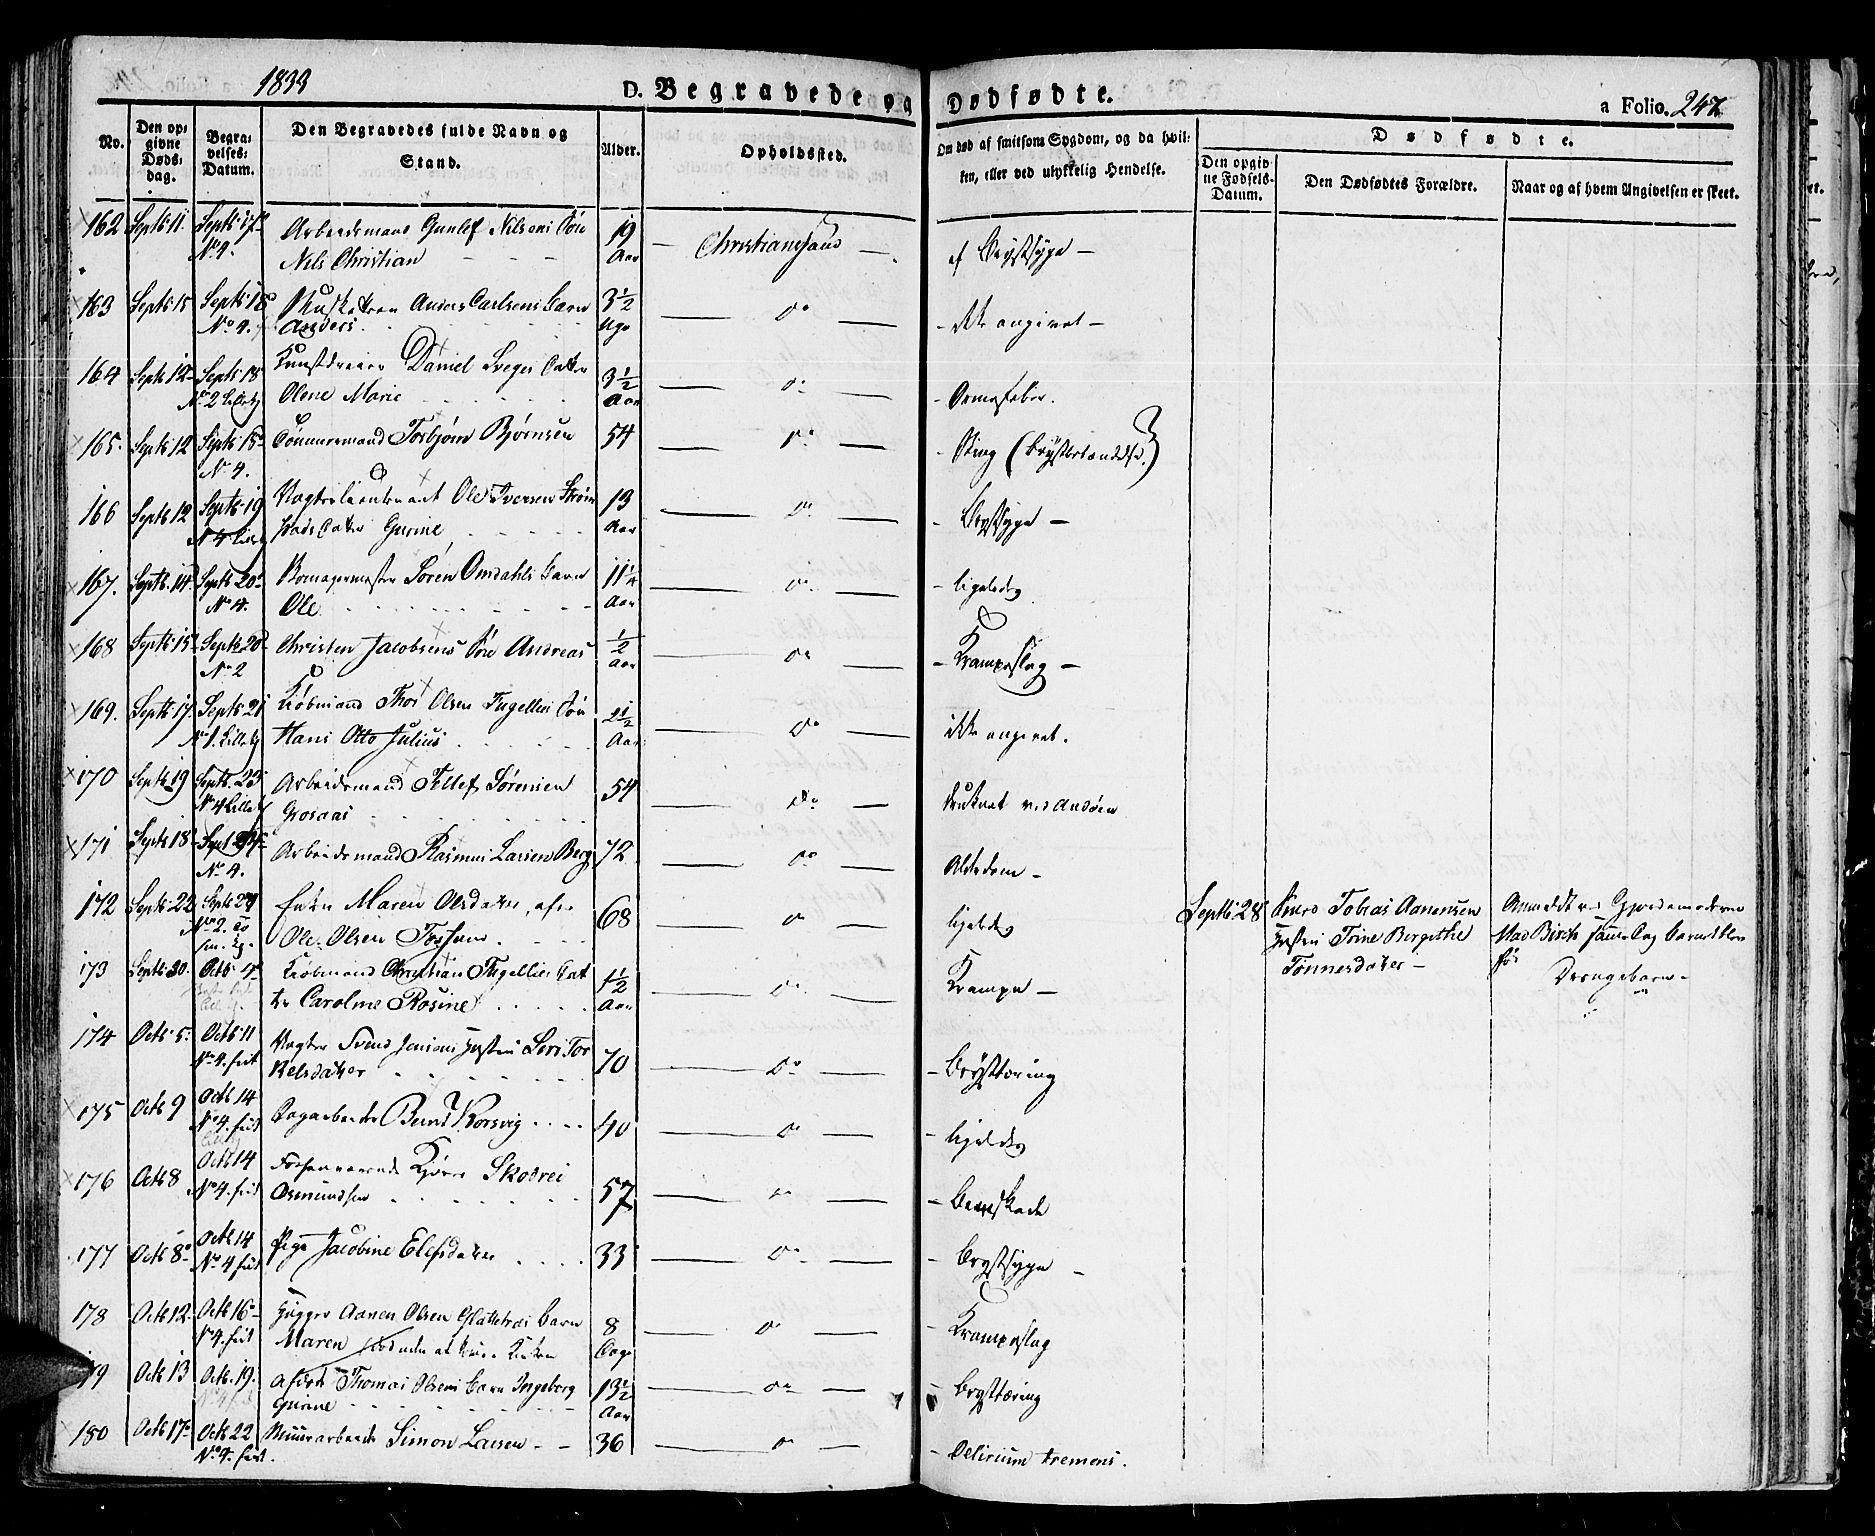 1839
D. Begravede og Dødfødte.
a Folio. 247
No.
Den op-
givne
Døds-
dag.
Begra-
velses-
Datum.
Den Begravedes fulde Navn og
Stand.
Alder.
Opholdssted.
Om død af smitsom Sygdom, og da hvil-
ken, eller ved ulykkelig Hendelse.
Dødfødte.
Den opgiv-
ne Fødsels-
Datum.
Den Dødfødtes Forældre.
Naar og af hvem Angivelsen er skeet.
162 Septb: 11. Septb: 17 Arbeidsmand Gunlef Nilsens Søn 19 Christianssand af Brystsyge
No 4. Nils Christian Aar
163 Septb: 15 Septb: 18 Musketeer Anders Carlsens Barn 3½ do ikke angivet
No 4. Anders Uge
164 Septb: 12 Septb: 18 Kunstdreier Daniel Datter 3½ do Ormefeber.
No 2 Olene Marie Aar
165. Septb: 12 Septb: 15 Tømmermand Torbjørn Bjørnsen 54 do Sting (Brystbetændelse)
No 4.
166 Septb: 12 Septb: 19 Vagterlieutenant Ole Iversen 13 do Brystsyge
No 4 Datter Gurine Aar
167. Septb: 14. Septb: 20 Søren Omdahls Barn 11¼ do ligeledes
No 4. Ole Aar
168 Septb: 15 Septb: 20 Christen Jacobsens Søn Andreas ½ do Krampeslag
No 2 Aar
169. Septb: 17. Septb: 21 Kiøbmand Thor Olsen Fugellies Søn 2½ do ikke angivet.
No 1. Hans Otto Julius Aar
170 Septb: 19 Septb. 23 Arbeidsmand Tellef Sørensen 54 do druknet ved Andøen
No 4 Grosaas
171 Septb: 18 Arbeidsmand Rasmus Larsen Berg 72 do Alderdom
No 4.
172 Septb: 22 Septb: 29 Enke Maren Olsdatter, efter 68 do ligeledes
No 2. Ole Olsen Fosham
Septb: 28 Tobias Aanensen
Hustru Trine Bergithe
Tønnesdatter
Anmeldt ved Gjordemoderen
Mad Birch samme Dag
Drengebarn
173 Septb: 30. Octb: 4 Kiøbmand Christian Fugellies Dat 1½ do Krampe
ter Caroline Rosine Aar
174 Octb: 5 Octb: 11 Vagter Svend Jensens Hustru Seri Tor 70 do Brysttæring
No 4. frit kelsdatter
175 Octb 9 Octb 14 Dagarbeider Bernt Korsvig 40 do ligeledes
No 4. frit
176 Octb 8 Octb 14 Skodvei 57 do Beenskade
No 4. frit Osmundsen
177 Octb: 8 Octb 14 Pige Jacobine Elefsdatter 33 do Brystsyge
No 4 frit
178 Octb: 12. Octb 16 Aanen Olsen Glattetræs Barn 8 do Krampeslag
No 4. frit Maren Dage
179 Octb 13 Octb. 19. Thomas Olsens Barn Ingeborg 13½ do Brysttæring
Gurine Aar
180 Octb: 17 Octb 22 Muurarbeider Simon Larsen 36 do Delirium tremens.
No 4. frit.